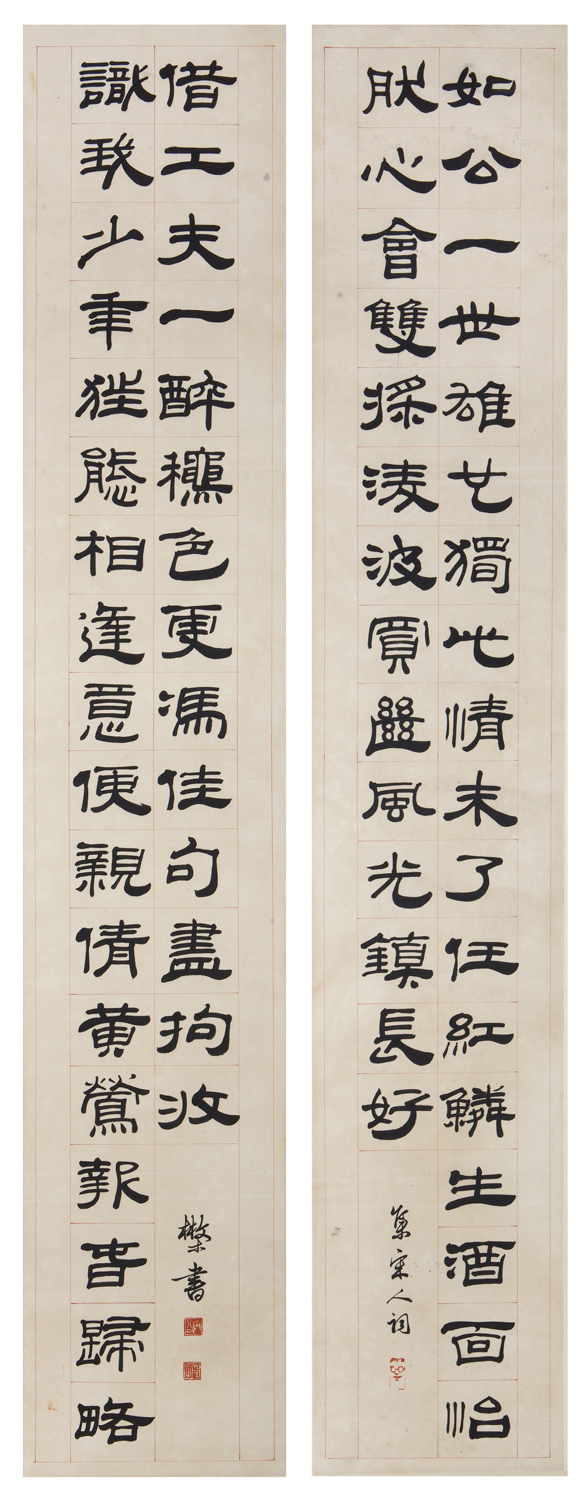 如公一世雄也獨此情未了任紅鱗生酒面怡
肰心會雙採凌波買斷風光鎮長好
集宋人詞
識我少年狂態相逢意便親倩黃鶯報春歸略
借工夫一醉穠色更馮佳句盡拘收
書